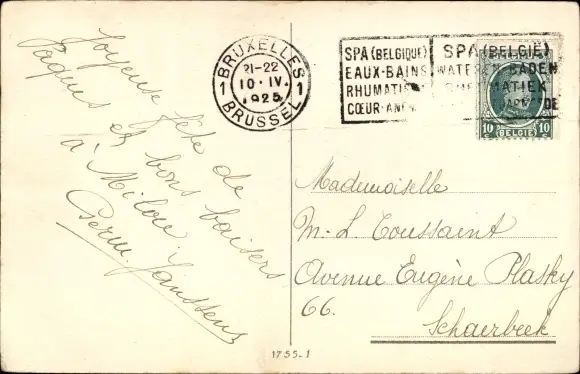 Joyeuse fête de
Pâques et bons baisers
à Milou
Germ. Janssens
BRUXELLES
21-22
10·IV.
1925
1 1
BRUSSEL
SPA (BELGIQUE)
EAUX-BAINS
RHUMATISME
CŒUR-ANÉMIE
SPA (BELGIË)
WATERS BADEN
RHEUMATIEK
10 BELGIË 10
Mademoiselle
M.-L. Toussaint
Avenue Eugène Plasky
66.
Schaerbeek
1755-1